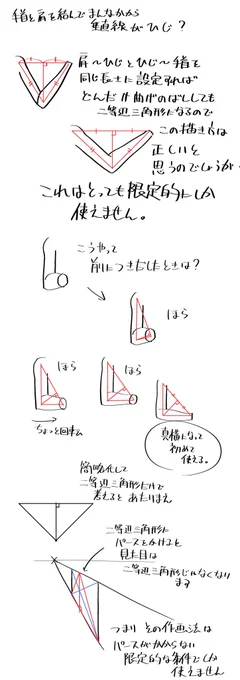 手首と肩を結んでまんなかから
垂直線がひじ?
肩〜ひじとひじ〜手首を
同じ長さに設定すれば
どんだけ曲げのばししても
二等辺三角形になるので
この描き方は
正しいと
思うのでしょうが
これはとっても限定的にしか
使えません。
こうやって
前につきだしたときは?
ほら
ほら
ほら
ちょっと回転
真横になって
初めて
使える。
簡略化して
二等辺三角形だけで
考えるとあたりまえ
二等辺三角形に
パースをかけると
見た目は
二等辺三角形じゃなくなり
ます
つまりその作画法は
パースがかからない
限定的な条件でしか
使えません